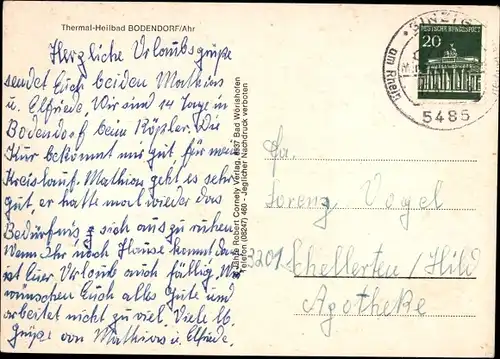 Thermal-Heilbad BODENDORF/Ahr
Herzliche Urlaubsgrüße
sendet Euch beiden Mathias
u. Elfriede. Wir sind 14 Tage in
Bodendorf beim Köpler. Die
Kur bekommt mir gut, für mein
Kreislauf. Mathias geht es sehr
gut, er hatte mal wieder das
Bedürfnis sich auszuruhen.
Wenn Ihr nach Hause kommt dann
ist Euer Urlaub auch fällig. Wir
wünschen Euch alles Gute und
arbeitet nicht zu viel. Viele lb.
Grüße von Mathias u. Elfriede.
Jahre Robert Cornely Verlag, 8937 Bad Wörishofen
Telefon (08247) 460 - Jeglicher Nachdruck verboten
SINZIG
am Rhein
5485
DEUTSCHE BUNDESPOST
20
Fa.
Lorenz Vogel
3201 Schellerten/Hild
Apotheke